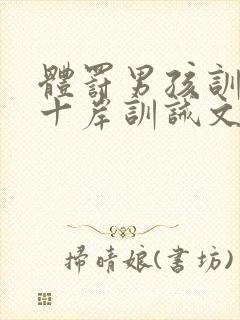 體罰男孩訓
十岸訓誡文
掃晴娘(書坊)